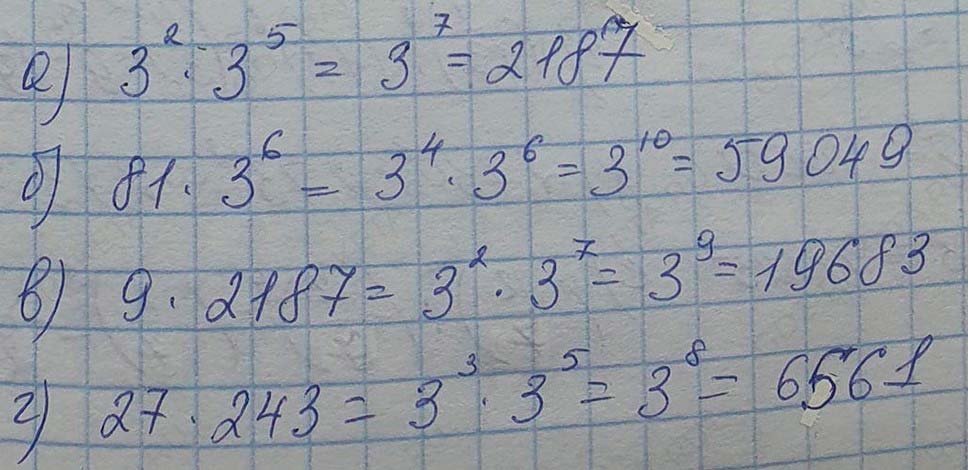 а) 3² · 3⁵ = 3⁷ = 2187
б) 81 · 3⁶ = 3⁴ · 3⁶ = 3¹⁰ = 59049
в) 9 · 2187 = 3² · 3⁷ = 3⁹ = 19683
г) 27 · 243 = 3³ · 3⁵ = 3⁸ = 6561